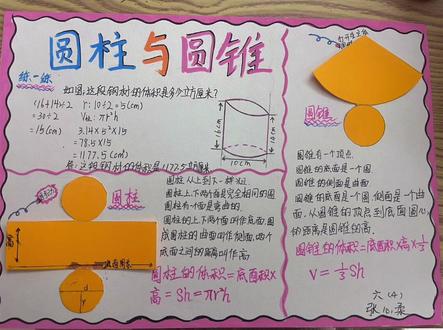 圆柱与圆锥
练一练
如图,这段钢材的体积是多少立方厘米?
(16+14)÷2
=30÷2
=15(cm)
r:10÷2=5(cm)
πr²h
3.14×5²×15
=78.5×15
=1177.5(cm³)
答:这段钢材的体积是1177.5立方厘米
16cm
14cm
10cm
圆柱
高
圆柱从上到下一样
圆柱上、下两个面是完全相同的圆
圆柱有一个面是弯曲的
圆柱的上、下两个面叫作底面,圆
成圆柱的曲面叫作侧面,两个
底面之间的距离叫作高
圆柱的体积=底面积×
高=Sh=πr²h
d
r
圆锥
圆锥有一个顶点
圆锥的底面是一个圆
圆锥的侧面是曲面
圆锥的底面是个圆,侧面是一个曲
面,从圆锥的顶点到底面圆心
的距离是圆锥的高.
圆锥的体积=底面积×高×⅓
V=⅓Sh
六(4)